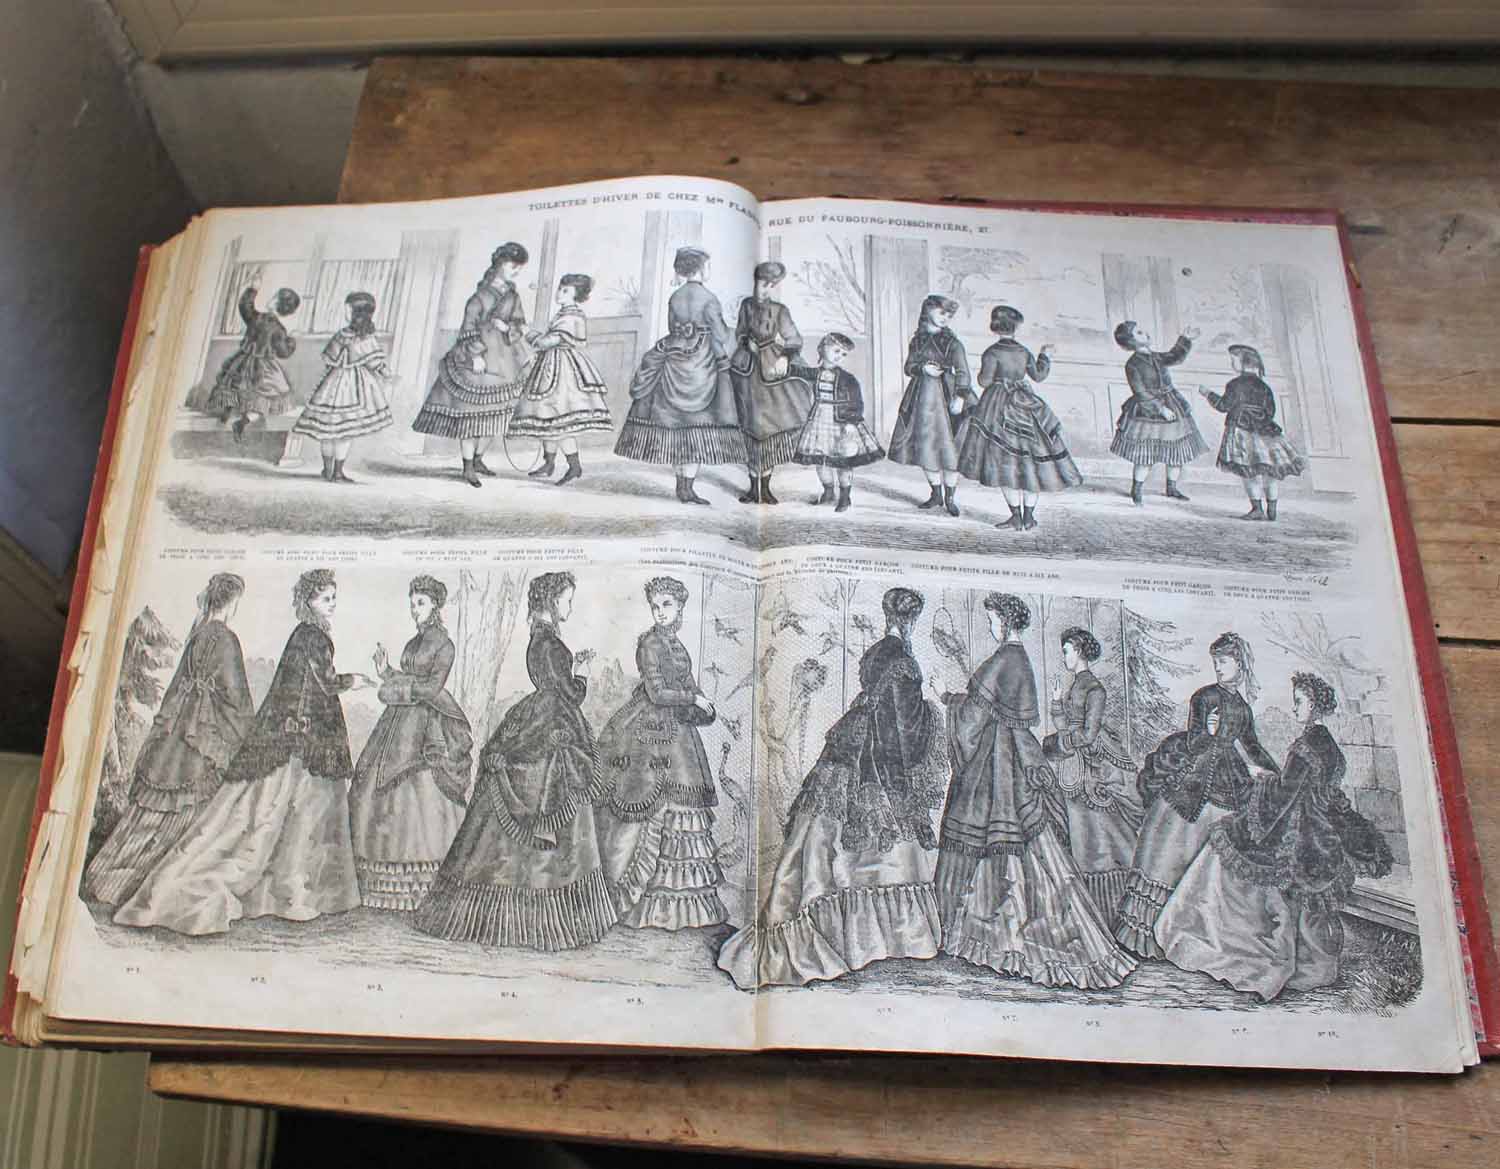 TOILETTES D'HIVER DE CHEZ Mme FLADRY, RUE DU FAUBOURG-POISSONNIÈRE, 27.
COSTUME POUR PETIT GARÇON
DE TROIS A CINQ ANS
COSTUME POUR PETITE FILLE
DE QUATRE A SIX ANS
COSTUME POUR PETITE FILLE
DE SIX A HUIT ANS.
COSTUME POUR PETITE FILLE
DE QUATRE A SIX ANS (DEVANT).
COSTUME POUR FILLETTE DE
COSTUME POUR PETIT GARÇON
DE DEUX A QUATRE ANS (DEVANT).
COSTUME POUR PETITE FILLE DE HUIT A DIX ANS.
COSTUME POUR PETIT GARÇON
DE TROIS A CINQ ANS (DEVANT).
COSTUME POUR PETIT GARÇON
DE DEUX A QUATRE ANS
No 1.
No 2.
No 3.
No 4.
No 5.
No 6.
No 7.
No 8.
No 9.
No 10.